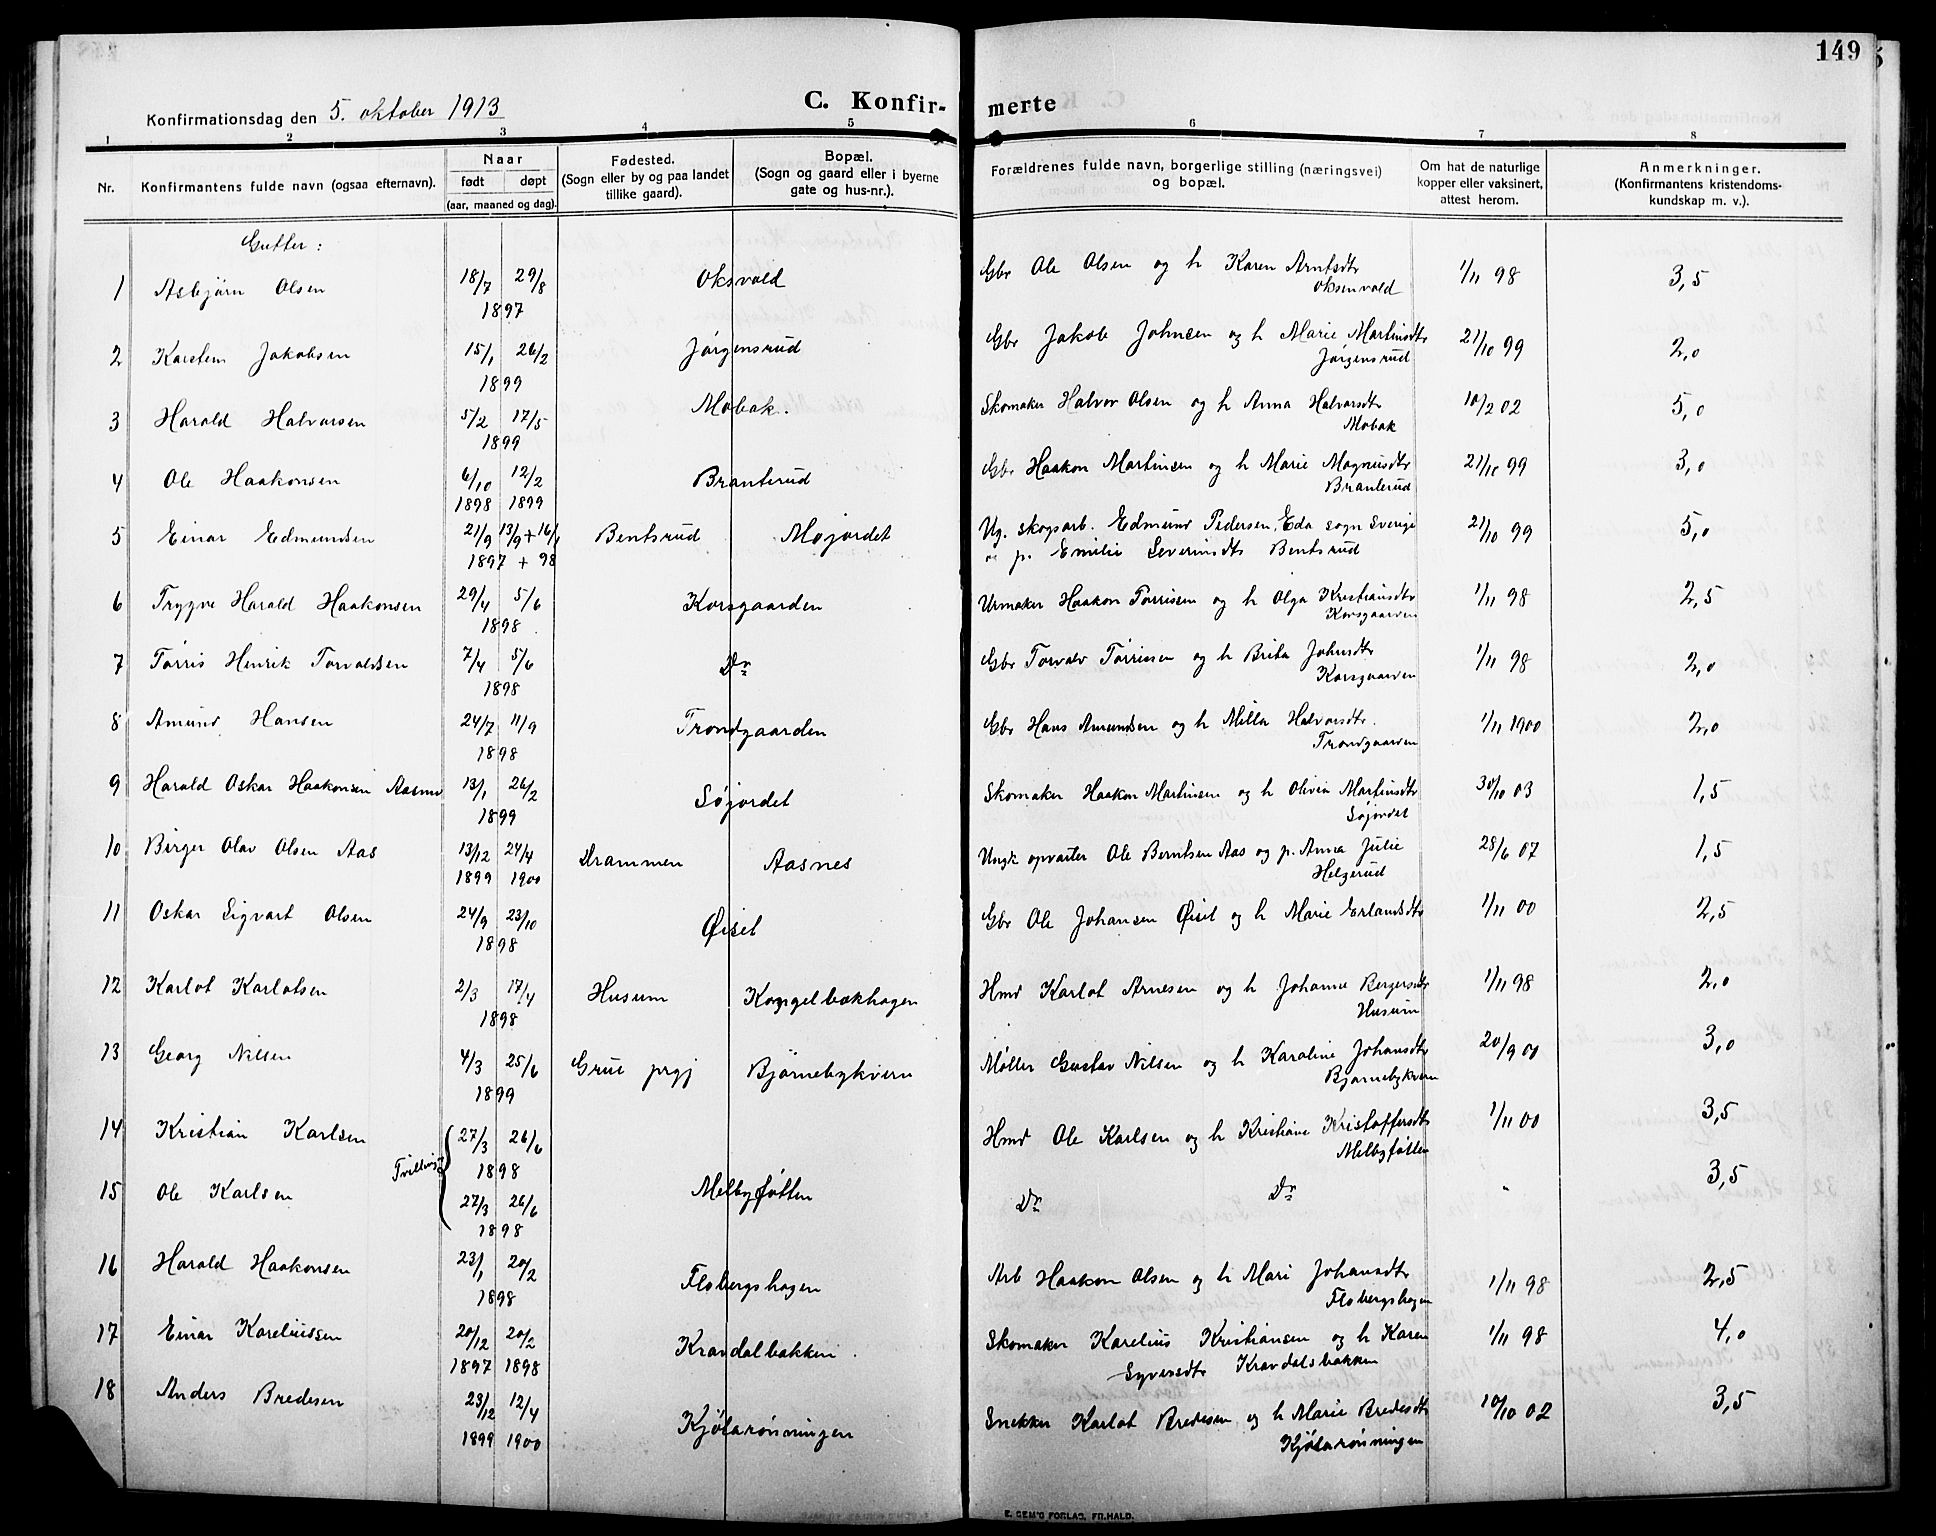 149
Konfirmationsdag den 5. oktober 1913
C. Konfir- merte
1 2 3 4 5 6 7 8
Nr.
Konfirmantens fulde navn (ogsaa efternavn).
Naar
født døpt
(aar, maaned og dag).
Fødested.
(Sogn eller by og paa landet
tillike gaard).
Bopæl.
(Sogn og gaard eller i byerne
gate og hus-nr.).
Forældrenes fulde navn, borgerlige stilling (næringsvei)
og bopæl.
Om hat de naturlige
kopper eller vaksinert,
attest herom.
Anmerkninger.
(Konfirmantens kristendoms-
kundskap m. v.).
Gutter:
1 Asbjørn Olsen 18/7 29/8 Oksvold Gbr Ole Olsen og h Karen Arntsdtr 1/11 98 3,5
1897 Oksenvold
2 Karsten Jakobsen 15/1 26/2 Jørgensrud Gbr Jakob Johnsen og h Marie Martinsdtr 21/10 99 2,0
1899 Jørgensrud
3 Harald Halvorsen 5/2 17/5 Mobak. Skomaker Halvor Olsen og h Anna Halvorsdtr 10/2 02 5,0
1899 Mobak
4 Ole Haakonsen 6/10 12/2 Branterud Gbr Haakon Martinsen og h Marie Magnusdtr 21/10 99 3,0
1898 1899 Branterud
5 Einar Edmundsen 21/9 13/9 + 16/1 Bentsrud Mojordet Ug. skogsarb. Edmund Pedersen, Eda sogn Sverige 21/10 99 5,0
1897 + 98 og p. Emilie Severinsdtr Bentsrud
6 Trygve Harald Haakonsen 29/4 5/6 Korsgaarden Urmaker Haakon Tørrisen og h Olga Kristiansdtr 1/11 98 2,5
1898 Korsgaarden
7 Tørris Henrik Torvaldsen 7/4 5/6 Do Gbr Torvald Tørrisen og h Brita Johnsdtr 1/11 98 2,0
1898 Korsgaarden
8 Amund Hansen 24/7 11/9 Trondgaarden Gbr Hans Amundsen og h Milla Halvorsdtr. 1/11 1900 2,0
1898 Trondgaarden
9 Harald Oskar Haakonsen Aasmo 13/1 26/2 Søjordet Skomaker Haakon Martinsen og h Olivia Martinsdtr 30/10 03 1,5
1899 Søjordet
10 Birger Olav Olsen Aas 13/12 24/4 Drammen Aasnes Ungk opvarter Ole Berntsen Aas og p. Anna Julie 28/6 07 1,5
1899 1900 Helgerud
11 Oskar Sigvart Olsen 24/9 23/10 Øiset Gbr Ole Johansen Øiset og h Marie Erlandsdtr 1/11 00 2,5
1898
12 Karlot Karlotsen 2/3 17/4 Husum Kongelbækhagen Hmd Karlot Arnesen og h Johanne Bergersdtr 1/11 98 2,0
1898 Husum
13 Georg Nilsen 4/3 25/6 Grue prgj Bjørnebykvern Møller Gustav Nilsen og h Karoline Johansdtr 20/9 00 3,0
1899 Bjørnebykvern
14 Kristian Karlsen 27/3 26/6 Hmd Ole Karlsen og h Kristiane Kristoffersdtr 1/11 00 3,5
1898 Melbyføtten
Tvilling
15 Ole Karlsen 27/3 26/6 Melbyføtten Do Do " 3,5
1898
16 Harald Haakonsen 23/1 20/2 Flobergshagen Arb Haakon Olsen og h Mari Johansdtr 1/11 98 2,5
1898 Flobergshagen
17 Einar Kareliussen 20/12 20/2 Kravdalbakken. Skomaker Karelius Kristiansen og h Karen 1/11 98 4,0
1897 1898 Syversdtr Kravdalsbakken
18 Anders Bredesen 23/12 12/4 Kjølarønningen Snekker Karlot Bredesen og h Marie Bredesdtr 10/10 02 3,5
1899 1900 Kjølarønningen
E. SEM'S FORLAG, FR.HALD.